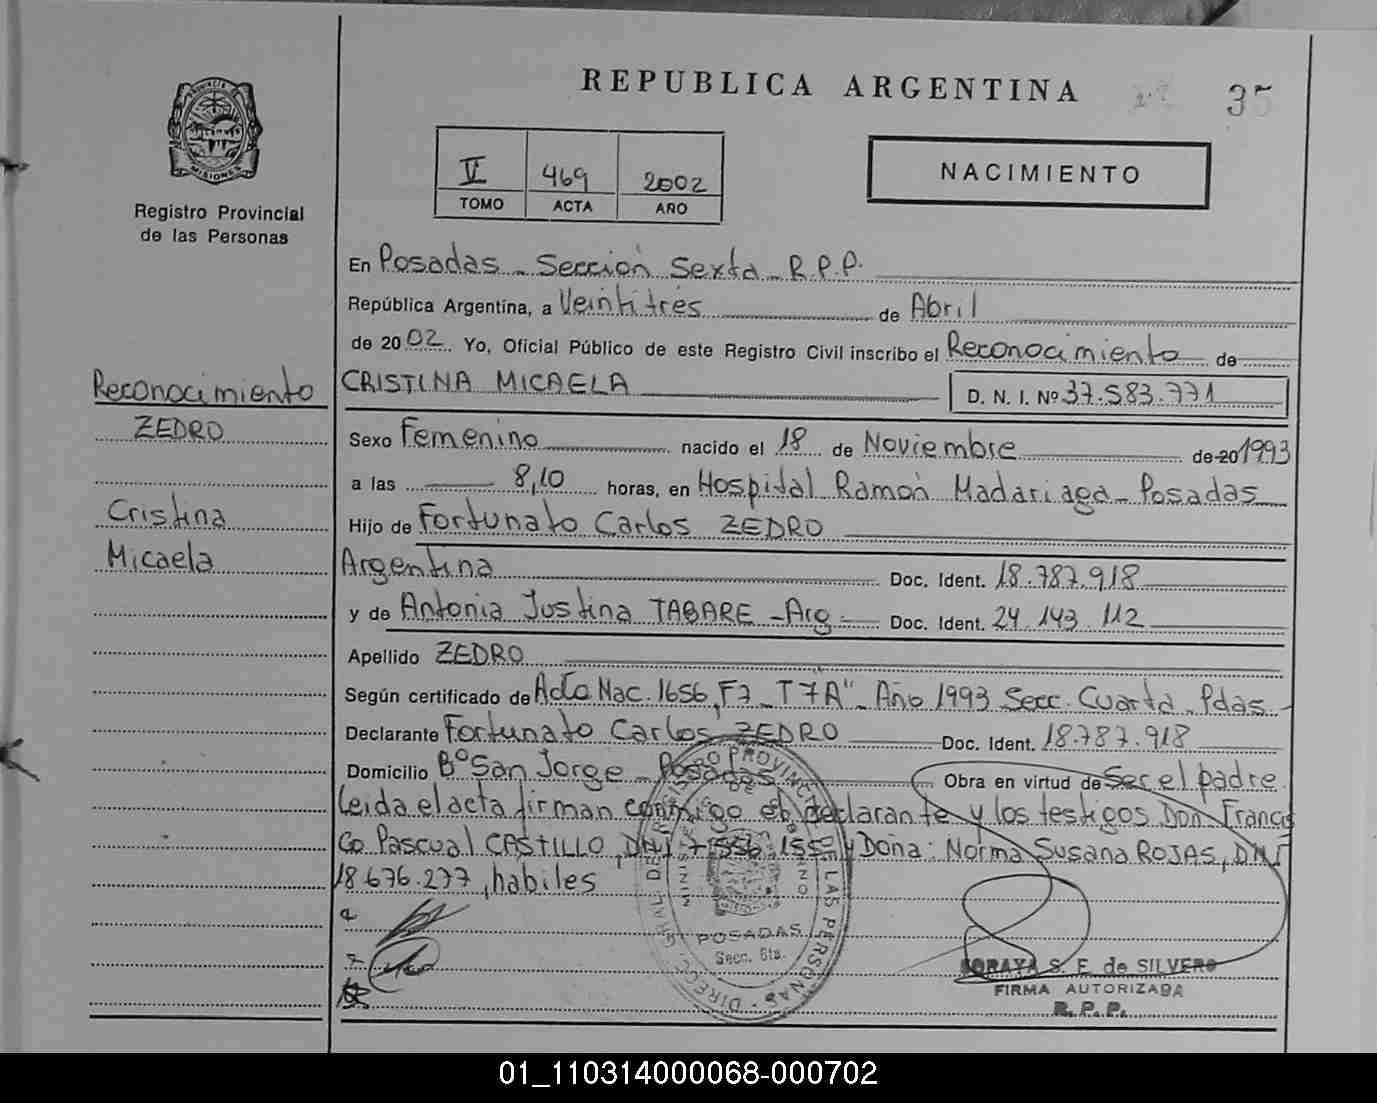 REPUBLICA ARGENTINA
35
PROVINCIA DE
MISIONES
Registro Provincial
de las Personas
V 469 2002
TOMO ACTA AÑO
NACIMIENTO
En Posadas - Sección Sexta - R.P.P.
República Argentina, a Veintitrés de Abril
de 2002. Yo, Oficial Público de este Registro Civil inscribo el Reconocimiento de
CRISTINA MICAELA D. N. I. Nº 37.583.771
Reconocimiento
ZEDRO
Cristina
Micaela
Sexo Femenino nacido el 18 de Noviembre de 20 1993
a las 8,10 horas, en Hospital Ramón Madariaga - Posadas
Hijo de Fortunato Carlos ZEDRO
Argentina Doc. Ident. 18.787.918
y de Antonia Justina TABARE - Arg - Doc. Ident. 24.143.112
Apellido ZEDRO
Según certificado de Acta Nac. 1656, F7 - T 7A" - Año 1993 Secc. Cuarta - Pdas -
Declarante Fortunato Carlos ZEDRO Doc. Ident. 18.787.918
Domicilio Bº San Jorge - Posadas Obra en virtud de Ser el padre
Leida el acta firman conmigo el declarante y los testigos Don: Francis
co Pascual CASTILLO, DNI 7.556.155 y Doña: Norma Susana ROJAS, DNI
18.676.277, habiles
POSADAS
Secc. 6ta.
SORAYA S. E. de SILVERO
FIRMA AUTORIZADA
R. P. P.
01_110314000068-000702